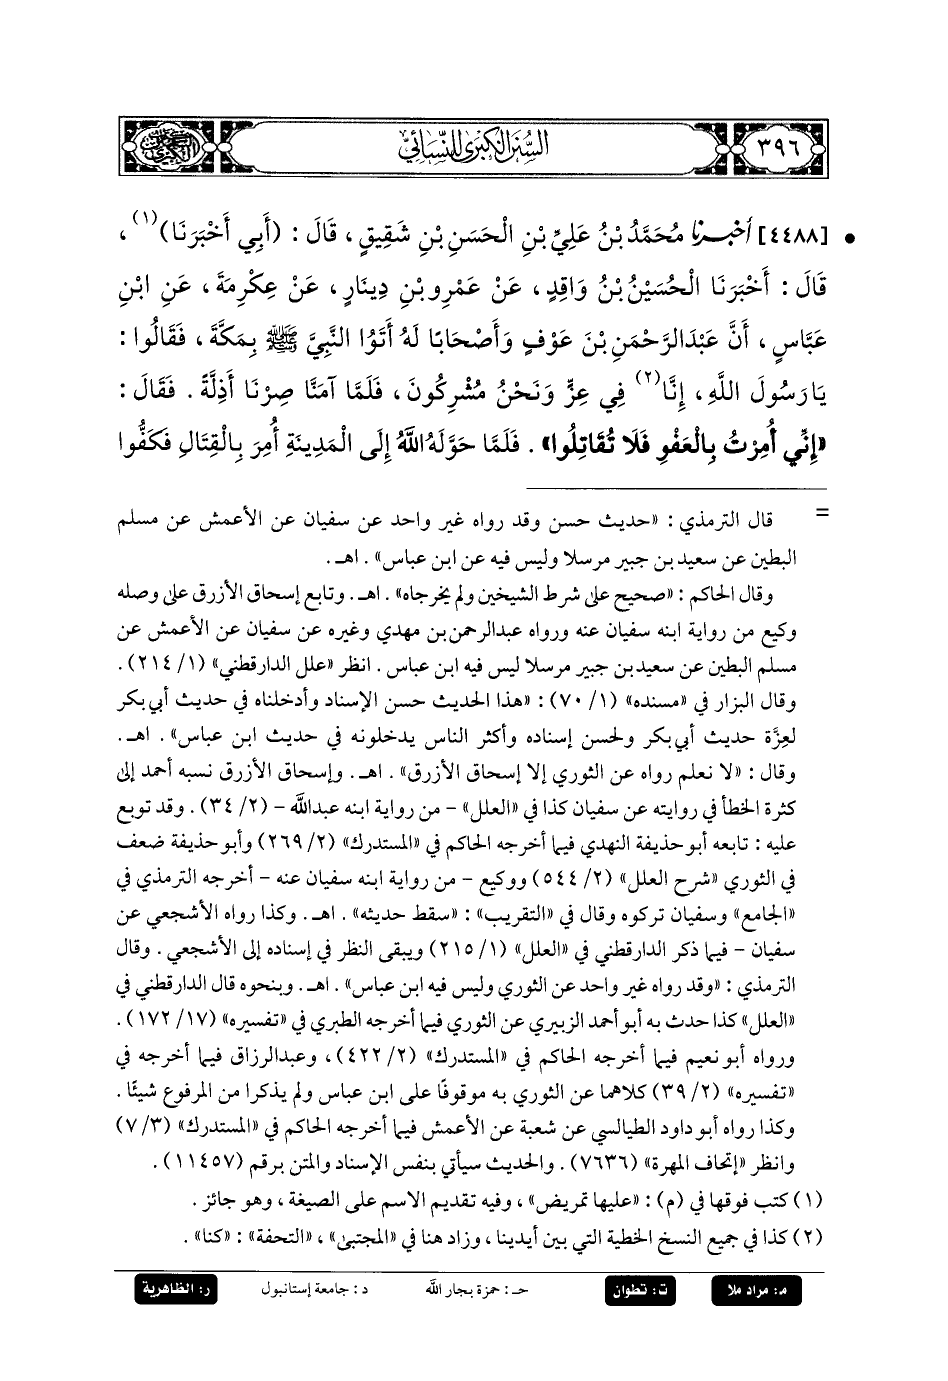 ٣٩٦
السنن الكبرى للنسائي
• [٤٤٨٨] أخبرنا مُحَمَّدُ بْنُ عَلِيِّ بْنِ الْحَسَنِ بْنِ شَقِيقٍ، قَالَ : (أَبِي أَخْبَرَنَا)(١)،
قَالَ : أَخْبَرَنَا الْحُسَيْنُ بْنُ وَاقِدٍ، عَنْ عَمْرِو بْنِ دِينَارٍ، عَنْ عِكْرِمَةَ، عَنِ ابْنِ
عَبَّاسٍ، أَنَّ عَبْدَالرَّحْمَنِ بْنَ عَوْفٍ وَأَصْحَابًا لَهُ أَتَوُا النَّبِيَّ ﷺ بِمَكَّةَ، فَقَالُوا :
يَا رَسُولَ اللَّهِ، إِنَّا(٢) فِي عِزٍّ وَنَحْنُ مُشْرِكُونَ، فَلَمَّا آمَنَّا صِرْنَا أَذِلَّةً . فَقَالَ :
«إِنِّي أُمِرْتُ بِالْعَفْوِ فَلَا تُقَاتِلُوا» . فَلَمَّا حَوَّلَهُ اللَّهُ إِلَى الْمَدِينَةِ أُمِرَ بِالْقِتَالِ فَكَفُّوا
= قال الترمذي : «حديث حسن وقد رواه غير واحد عن سفيان عن الأعمش عن مسلم
البطين عن سعيد بن جبير مرسلا وليس فيه عن ابن عباس» . اهـ .
وقال الحاكم : «صحيح على شرط الشيخين ولم يخرجاه» . اهـ . وتابع إسحاق الأزرق على وصله
وكيع من رواية ابنه سفيان عنه ورواه عبدالرحمن بن مهدي وغيره عن سفيان عن الأعمش عن
مسلم البطين عن سعيد بن جبير مرسلا ليس فيه ابن عباس . انظر «علل الدارقطني» (١/ ٢١٤) .
وقال البزار في «مسنده» (١/ ٧٠) : «هذا الحديث حسن الإسناد وأدخلناه في حديث أبي بكر
لعِزَّة حديث أبي بكر ولحسن إسناده وأكثر الناس يدخلونه في حديث ابن عباس» . اهـ .
وقال : «لا نعلم رواه عن الثوري إلا إسحاق الأزرق» . اهـ . وإسحاق الأزرق نسبه أحمد إلى
كثرة الخطأ في روايته عن سفيان كذا في «العلل» – من رواية ابنه عبدالله – (٢/ ٣٤) . وقد توبع
عليه : تابعه أبو حذيفة النهدي فيما أخرجه الحاكم في «المستدرك» (٢/ ٢٦٩) وأبو حذيفة ضعف
في الثوري «شرح العلل» (٢/ ٥٤٤) ووكيع – من رواية ابنه سفيان عنه – أخرجه الترمذي في
«الجامع» وسفيان تركوه وقال في «التقريب» : «سقط حديثه» . اهـ . وكذا رواه الأشجعي عن
سفيان – فيما ذكر الدارقطني في «العلل» (١/ ٢١٥) ويبقى النظر في إسناده إلى الأشجعي . وقال
الترمذي : «وقد رواه غير واحد عن الثوري وليس فيه ابن عباس» . اهـ . وبنحوه قال الدارقطني في
«العلل» كذا حدث به أبو أحمد الزبيري عن الثوري فيما أخرجه الطبري في «تفسيره» (١٧/ ١٧٢) .
ورواه أبو نعيم فيما أخرجه الحاكم في «المستدرك» (٢/ ٤٢٢)، وعبدالرزاق فيما أخرجه في
«تفسيره» (٢/ ٣٩) كلاهما عن الثوري به موقوفًا على ابن عباس ولم يذكرا من المرفوع شيئًا .
وكذا رواه أبو داود الطيالسي عن شعبة عن الأعمش فيما أخرجه الحاكم في «المستدرك» (٣/ ٧)
وانظر «إتحاف المهرة» (٧٦٣٦) . والحديث سيأتي بنفس الإسناد والمتن برقم (١١٤٥٧) .
(١) كتب فوقها في (م) : «عليها تمريض»، وفيه تقديم الاسم على الصيغة، وهو جائز .
(٢) كذا في جميع النسخ الخطية التي بين أيدينا، وزاد هنا في «المجتبى»، «التحفة» : «كنا» .
م: مراد ملا ت: تطوان حـ: حمزة بجار الله د: جامعة إستانبول ر: الظاهرية